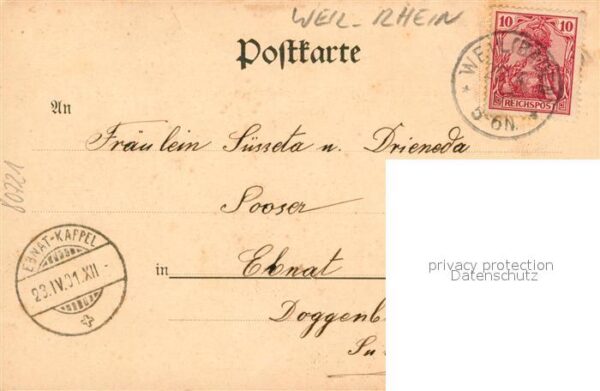 WEIL-RHEIN
Postkarte
10 10
REICHSPOST
* WEIL (B
5-6N. *
An
Fräulein Süsseta u. Drieneda
Sooser
in Ebnat
Doggenb
80721
EBNAT-KAPPEL
23.IV.01.XII-
privacy protection
Datenschutz